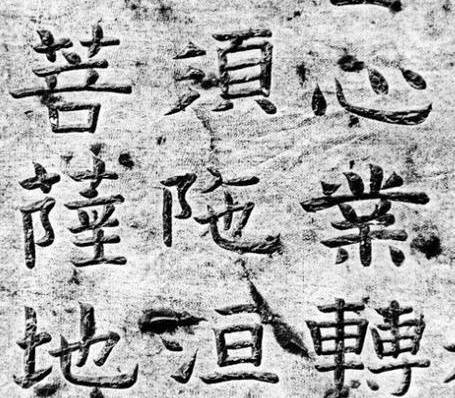 心業轉
須陁洹
菩薩地